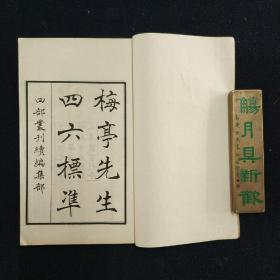 梅亭先生
四六標準
四部叢刊續編集部
月具新歡